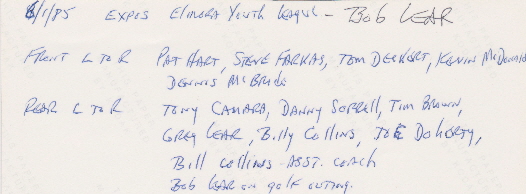 6/1/85 EXPOS Elmora Youth League - Bob LEAR
FRONT L TO R PAT HART, STEVE FARKAS, TOM DECKERT, KEVIN McDONALD
DENNIS McBRIDE
REAR L TO R TONY CAMARA, DANNY SORRELL, TIM BROWN,
GREG LEAR, Billy Collins, JOE DOHERTY,
Bill Collins - ASST. COACH
Bob LEAR on golf outing.